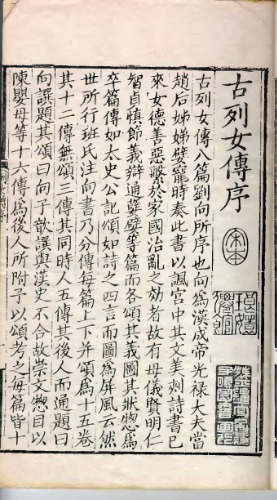 古列女傳序
古列女傳八篇劉向所序也向為漢成帝光禄大夫當
趙后姊娣嬖寵時奏此書以諷宫中其文美刺詩書已
來女德善惡繫於家國治亂之効者故有母儀賢明仁
智貞慎節義辯通嬖孽等篇而各頌其義圖其狀惣為
卒篇傳如太史公記頌如詩之四言而圖為屏風云然
世所行班氏注向書乃分傳每篇上下并頌為十五卷
其十二傳無頌三傳其同時人五傳其後人而通題曰
向譔題其頌曰向子歆譔與漢史不合故崇文惣目以
陳嬰母等十六傳為後人所附予以頌考之每篇皆十